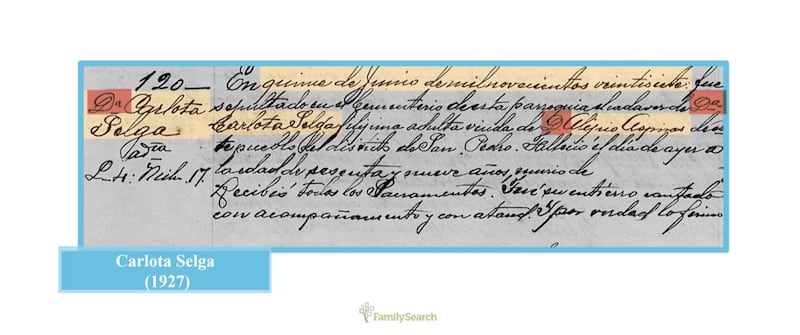 120—
Dª Carlota
Selga
adta
En quince de Junio de mil novecientos veintisiete fue
sepultado en el Cementerio de esta parroquia el cadaver de Dª
Carlota Selga, filipina adulta viuda de D. Alipio de es
te pueblo del distrito de San Pedro. Falleció el día de ayer a
la edad de sesenta y nueve años, murio de
Recibió todos los Sacramentos. Fué su entierro cantado
con acompañamiento y con ataud. Y por verdad lo firmo
Carlota Selga
(1927)
FamilySearch